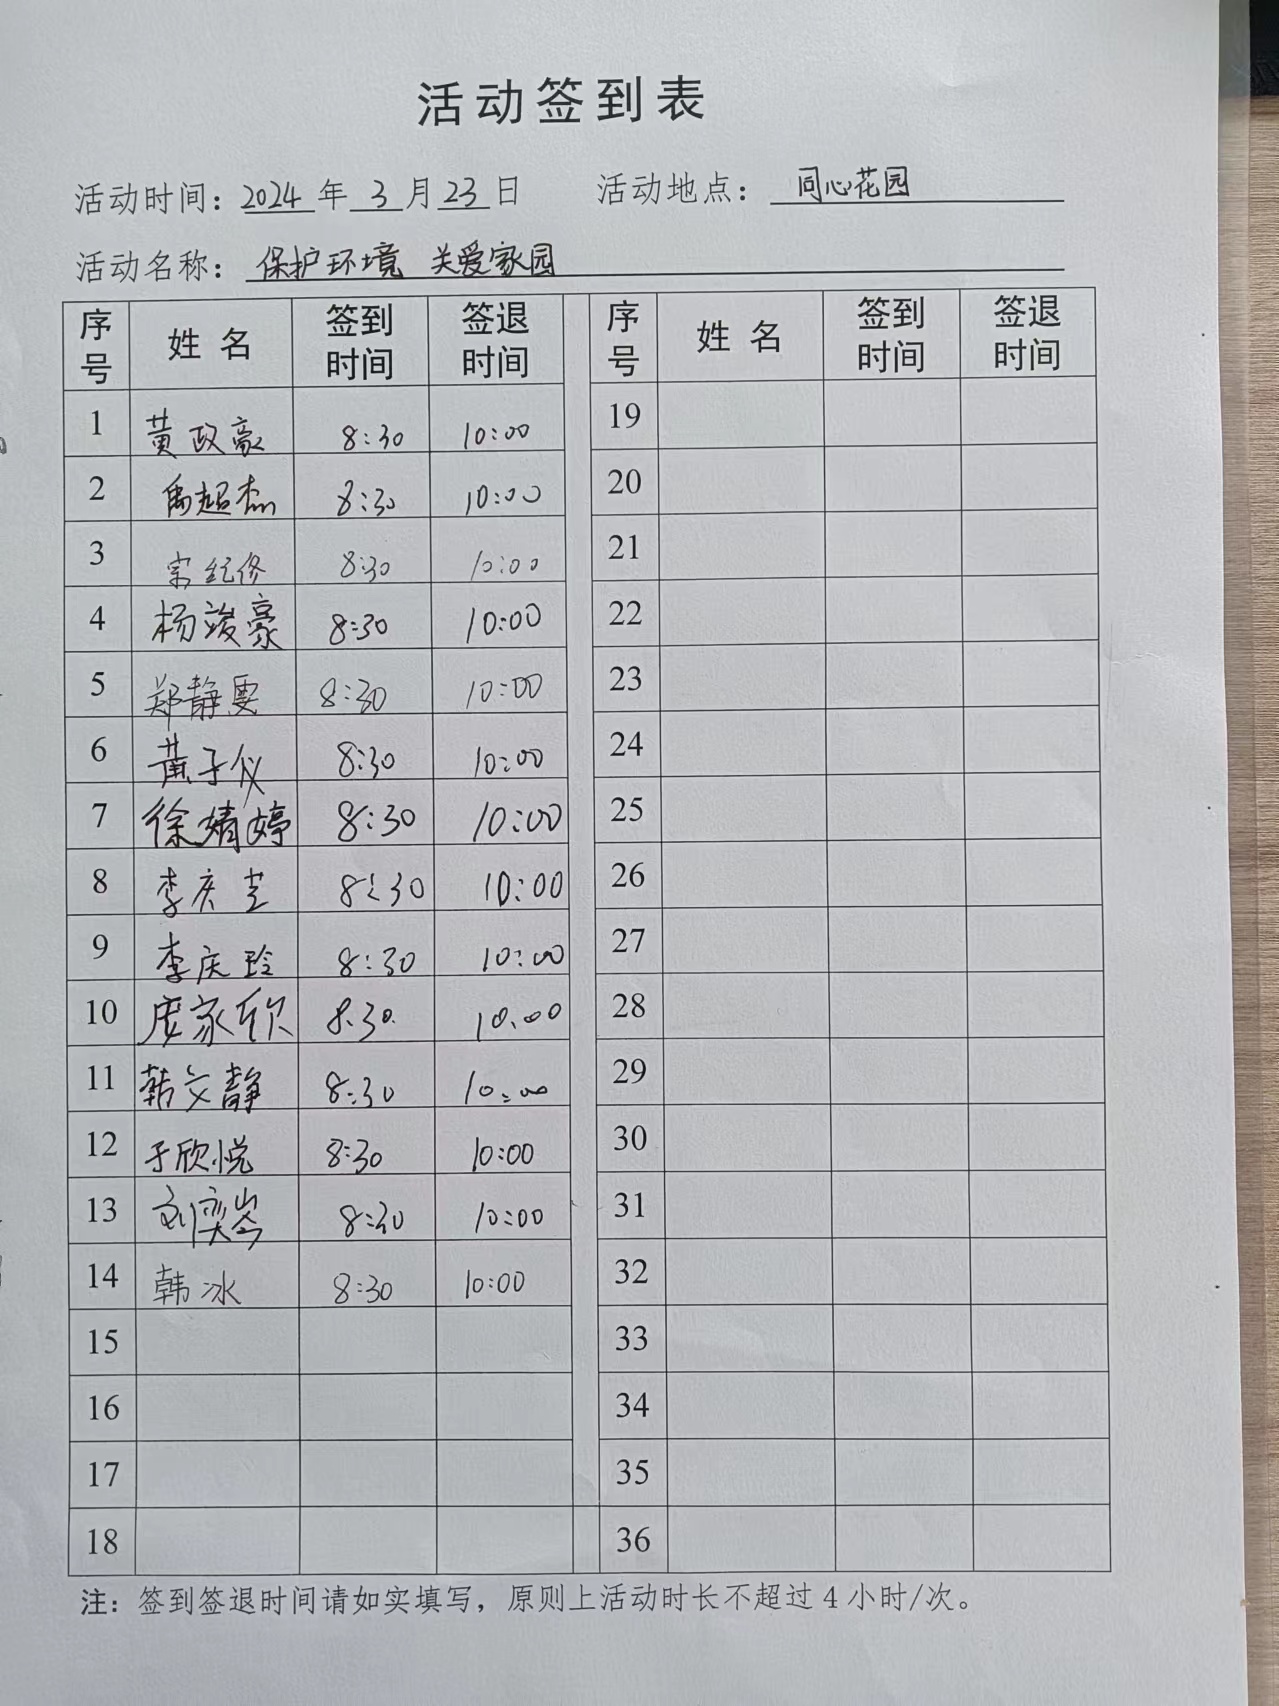 活动签到表
活动时间：2024年3月23日 活动地点：同心花园
活动名称：保护环境 关爱家园
序号 姓名 签到时间 签退时间 序号 姓名 签到时间 签退时间
1 黄政豪 8:30 10:00 19
2 禹超杰 8:30 10:00 20
3 宗纪修 8:30 10:00 21
4 杨竣豪 8:30 10:00 22
5 郑静雯 8:30 10:00 23
6 黄子仪 8:30 10:00 24
7 徐婧婷 8:30 10:00 25
8 李庆芝 8:30 10:00 26
9 李庆玲 8:30 10:00 27
10 家欣 8:30 10:00 28
11 韩文静 8:30 10:00 29
12 于欣悦 8:30 10:00 30
13 刘奕岑 8:30 10:00 31
14 韩冰 8:30 10:00 32
15 33
16 34
17 35
18 36
注：签到签退时间请如实填写，原则上活动时长不超过4小时/次。